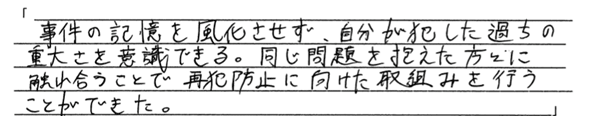 「
事件の記憶を風化させず、自分が犯した過ちの
重大さを意識できる。同じ問題を抱えた方々に
触れ合うことで再犯防止に向けた取組みを行う
ことができた。」